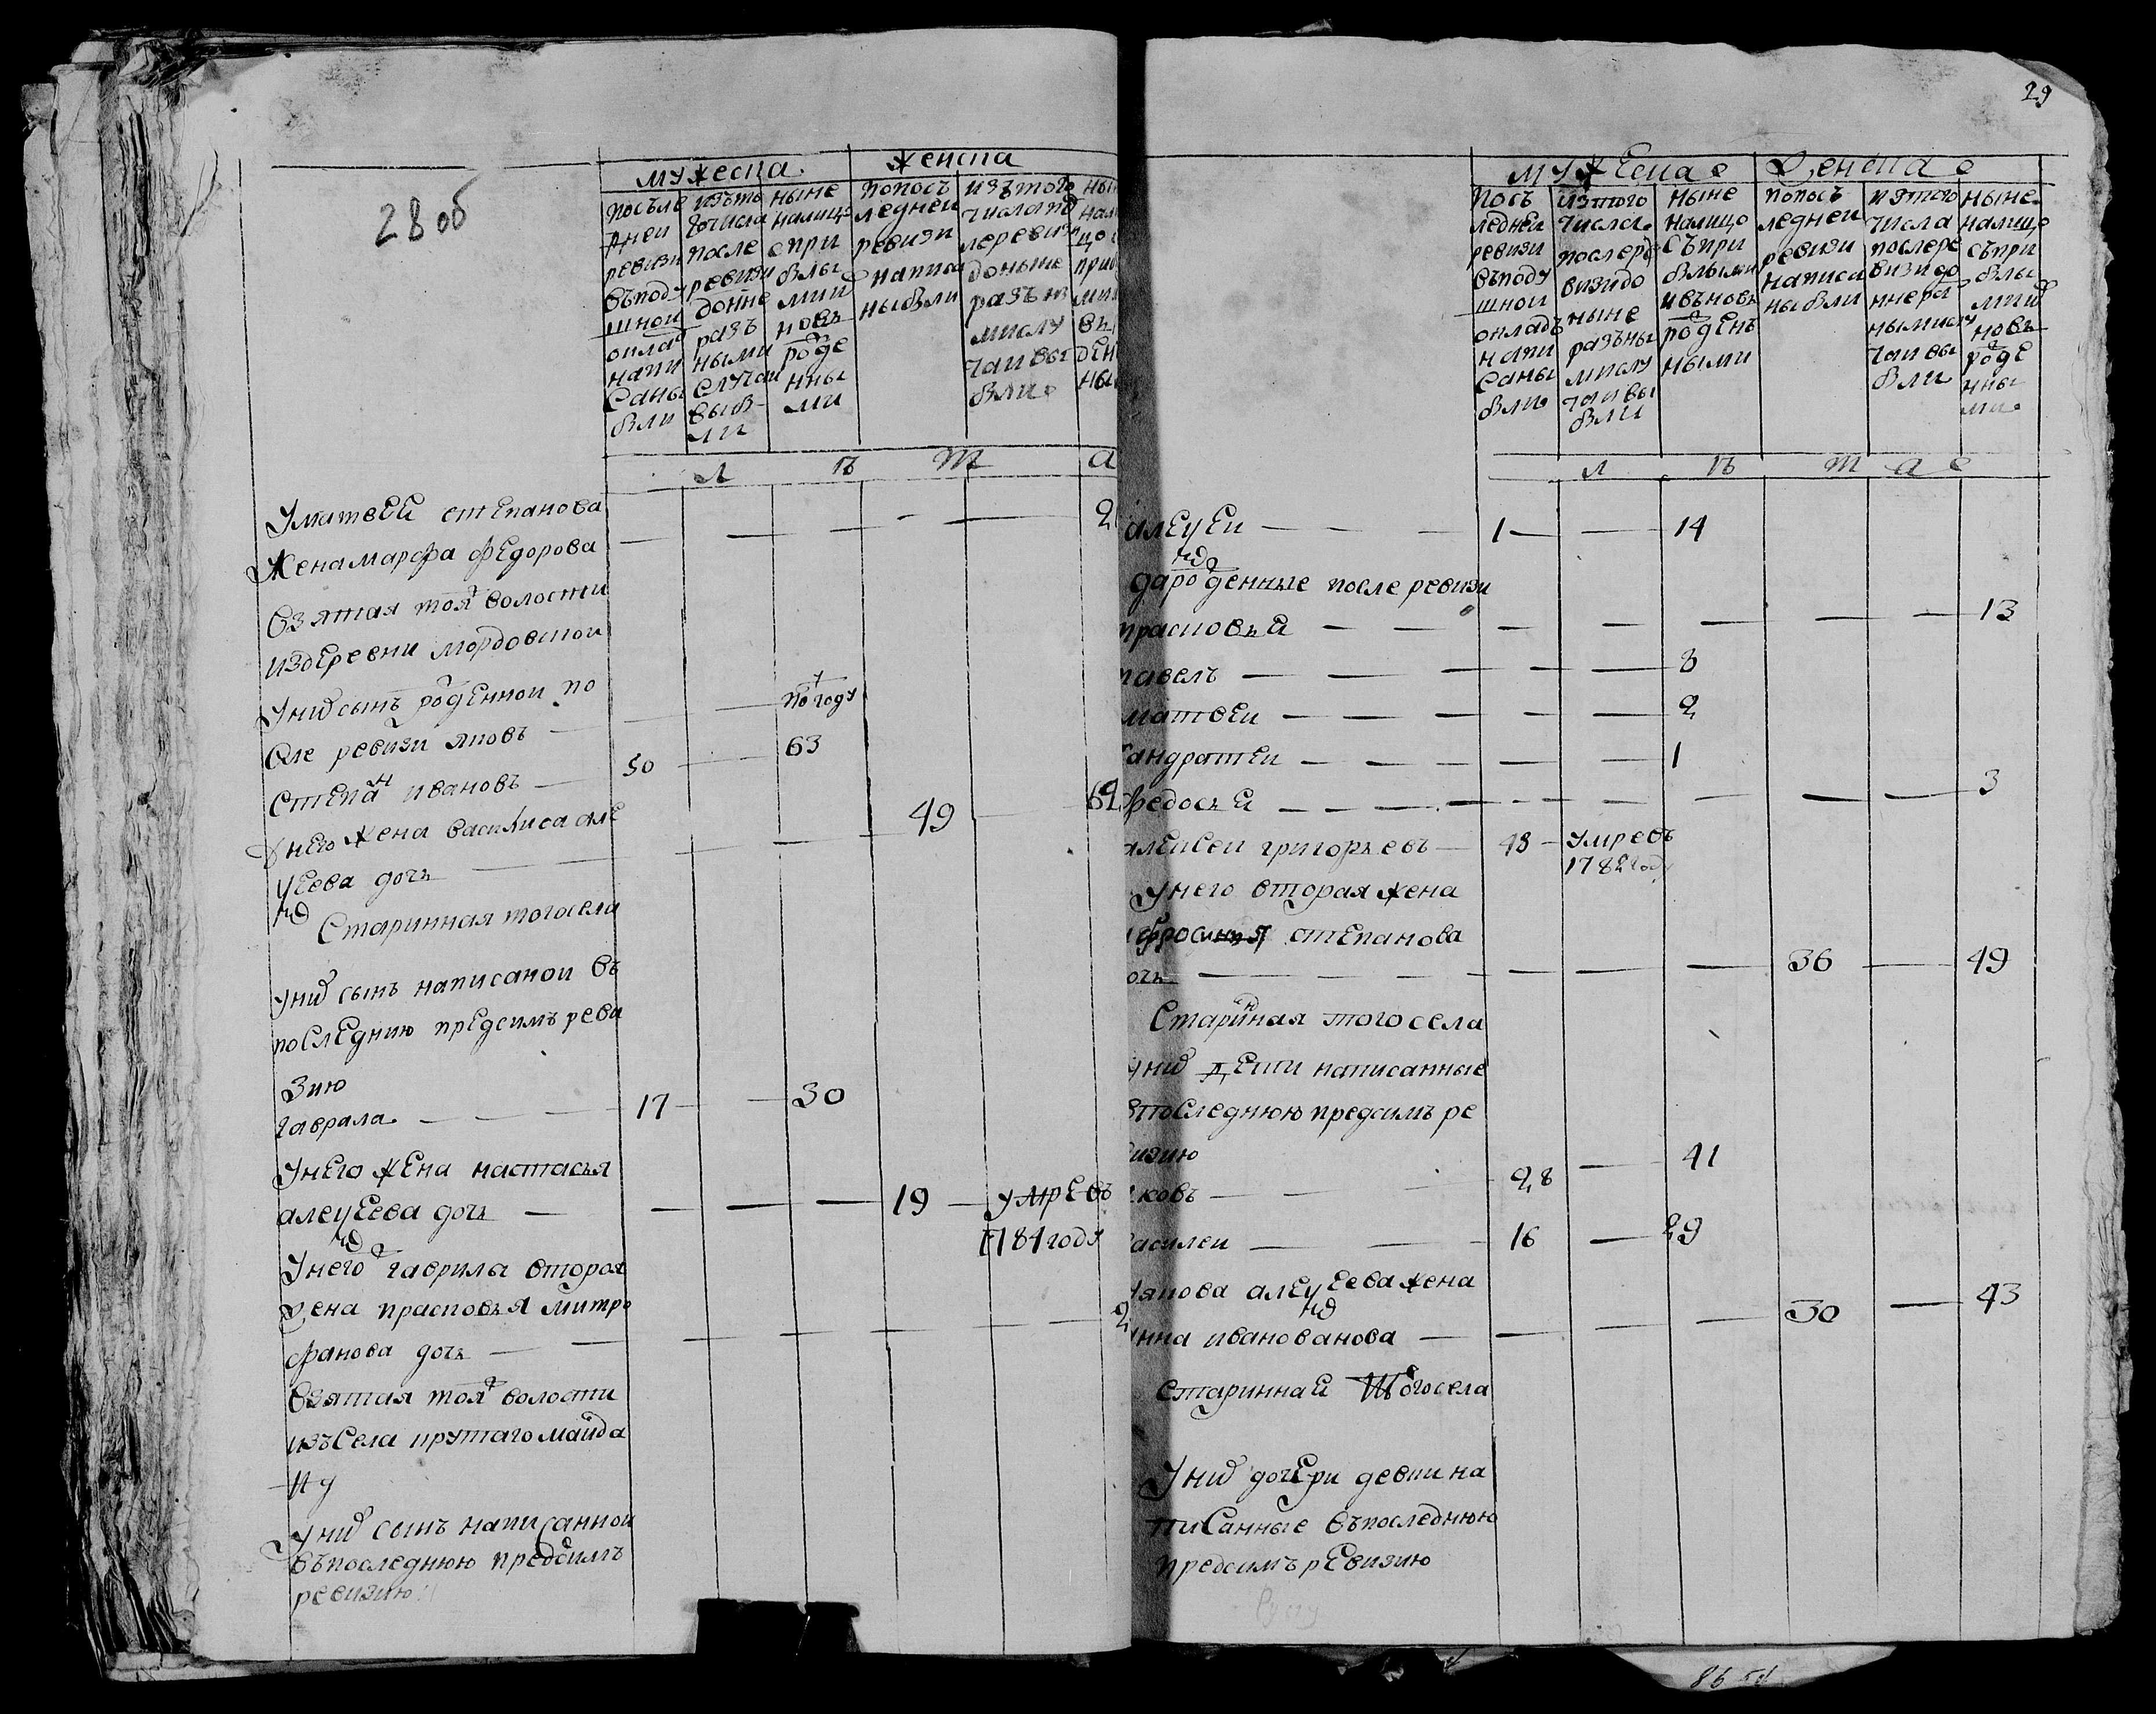 28 об
мужеска
женска
посъле
дней
ревизи
въподу
шной
оклад
напи
саны
были
изъто
гочисла
после
ревизи
доине
разъ
ными
случаи
выбы
ли
ныне
налицо
спри
былы
ми и
новъ
роде
нны
ми
попосъ
ледней
ревизи
написа
ны были
изътого
числа по
слеревиз
доныне
разън
мислу
чаи вы
были
л ѣ т а
Уматвей степанова
Жена марфа федорова
Взятая тоя волости
издеревни мордовской
Уних сынъ роденной по
сле ревизи яковъ — по году
Степанъ ивановъ — 50 — 63
У него жена василиса але
ѯеева дочь — 49 — 62
Старинная тогосела
уних сынъ написаной въ
последнию предсимъ реви
зию
гаврала — 17 — 30
Унего жена настасья
алеѯеева дочь — 19 — умре въ
1784 году
Унего гаврилы вторая
жена прасковья митро
фанова дочь — 2
Взятая тоя волости
изъ села крутаго майда
на
уних сынъ написанной
въпоследнюю предсимъ
ревизию
29
мужеска
женска
посъ
ледней
ревизи
въподу
шной
окладъ
напи
саны
были
изтого
числа
послере
визидо
ныне
разъны
мислу
чаи вы
были
ныне
налицо
съпри
былыми
ивъновь
роденъ
ными
попосъ
ледней
ревизи
написа
ны были
изтого
числа
послере
визидо
ннера
нымислу
чаи вы
были
ныне
налице
съпри
былы
ми и
новъ
роде
нны
ми
л ѣ т а
алеѯей — 1 — 14
дароденные после ревизи
прасковья — 13
павелъ — 8
матвей — 2
кандратей — 1
федосья — 3
алексей григорьевъ — 48 — умре въ
1782 году
Унего вторая жена
ефросинья степанова
дочь — 36 — 49
Старинная того села
уних дети написанные
впоследнюю предсимъ ре
визию
яковъ — 28 — 41
василей — 16 — 29
Уякова алеѯеева жена
анна иванованова — 30 — 43
старинная тогосела
Уних дочери девки на
писанные въпоследнюю
предсимъ ревизию